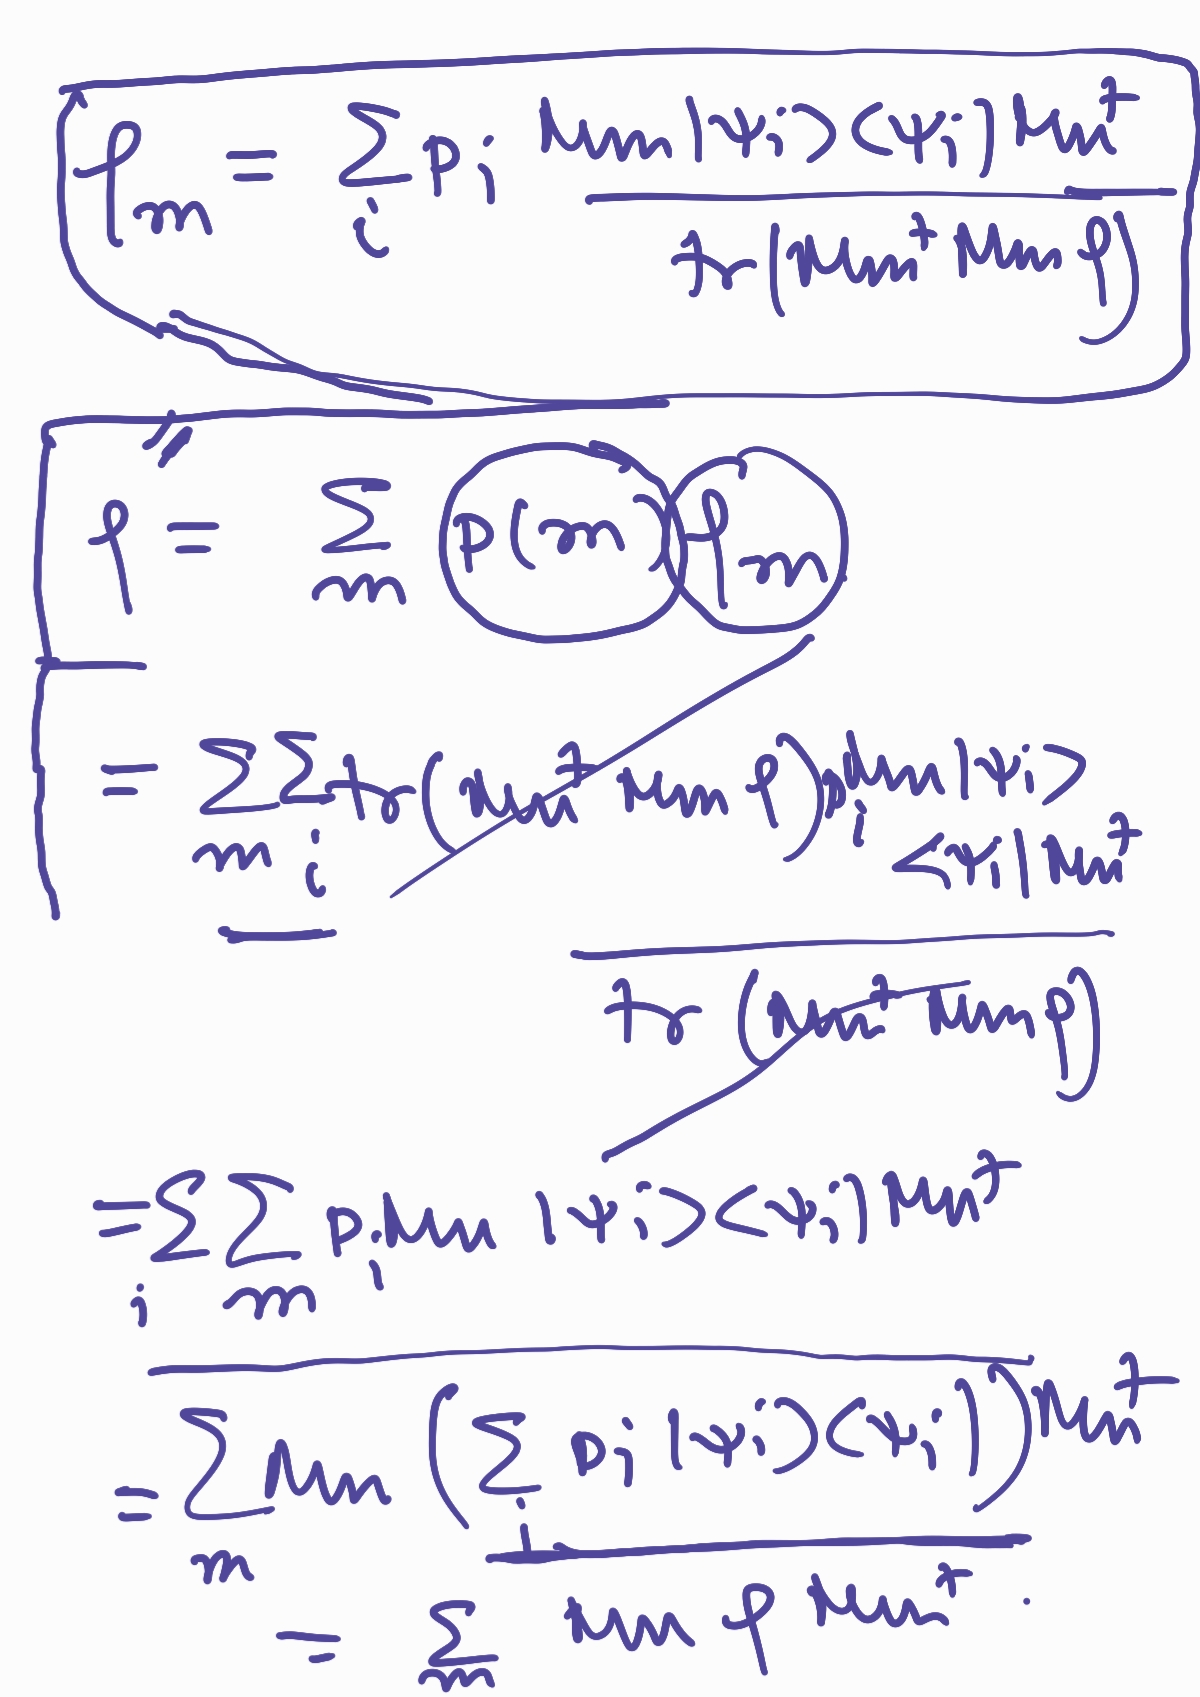 ρ_m = Σ_i p_i M_m |ψ_i> <ψ_i| M_m^†
tr (M_m^† M_m ρ)
ρ = Σ_m p(m) ρ_m
= Σ_m Σ_i tr (M_m^† M_m ρ) p_i M_m |ψ_i>
<ψ_i| M_m^†
tr (M_m^† M_m ρ)
= Σ_i Σ_m p_i M_m |ψ_i> <ψ_i| M_m^†
= Σ_m M_m (Σ_i p_i |ψ_i> <ψ_i|) M_m^†
= Σ_m M_m ρ M_m^† .